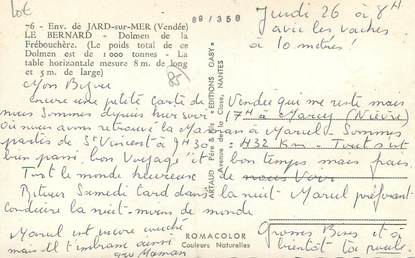 Lot
88/350
Jeudi 26 à 8H
avec les vaches
à 10 mètres!
76 - Env. de JARD-sur-MER (Vendée)
LE BERNARD - Dolmen de la
Frébouchère. (Le poids total de ce
Dolmen est de 1 000 tonnes - La
table horizontale mesure 8 m. de long
et 5 m. de large)
(85)
ARTAUD Père & Fils • EDITIONS "GABY"
Avenue de la Close, NANTES
Mon
encore une petite carte de Vendée qui me reste mais
nous sommes depuis hier soir 17H à (Nièvre)
où nous avons retrouvé la Maman à Marcel - Sommes
partis de St Vincent à 9H30 : 432 Km - Tout s'est
bien passé, bon voyage et bon temps mais frais.
Tout le monde heureux de nous voir
Retour Samedi tard dans la nuit - Marcel préférant
conduire la nuit - moins de monde
Marcel est encore couché
mais il t'embrasse aussi
Maman
Grosses Bises et à
bientôt ta
ROMACOLOR
Couleurs Naturelles